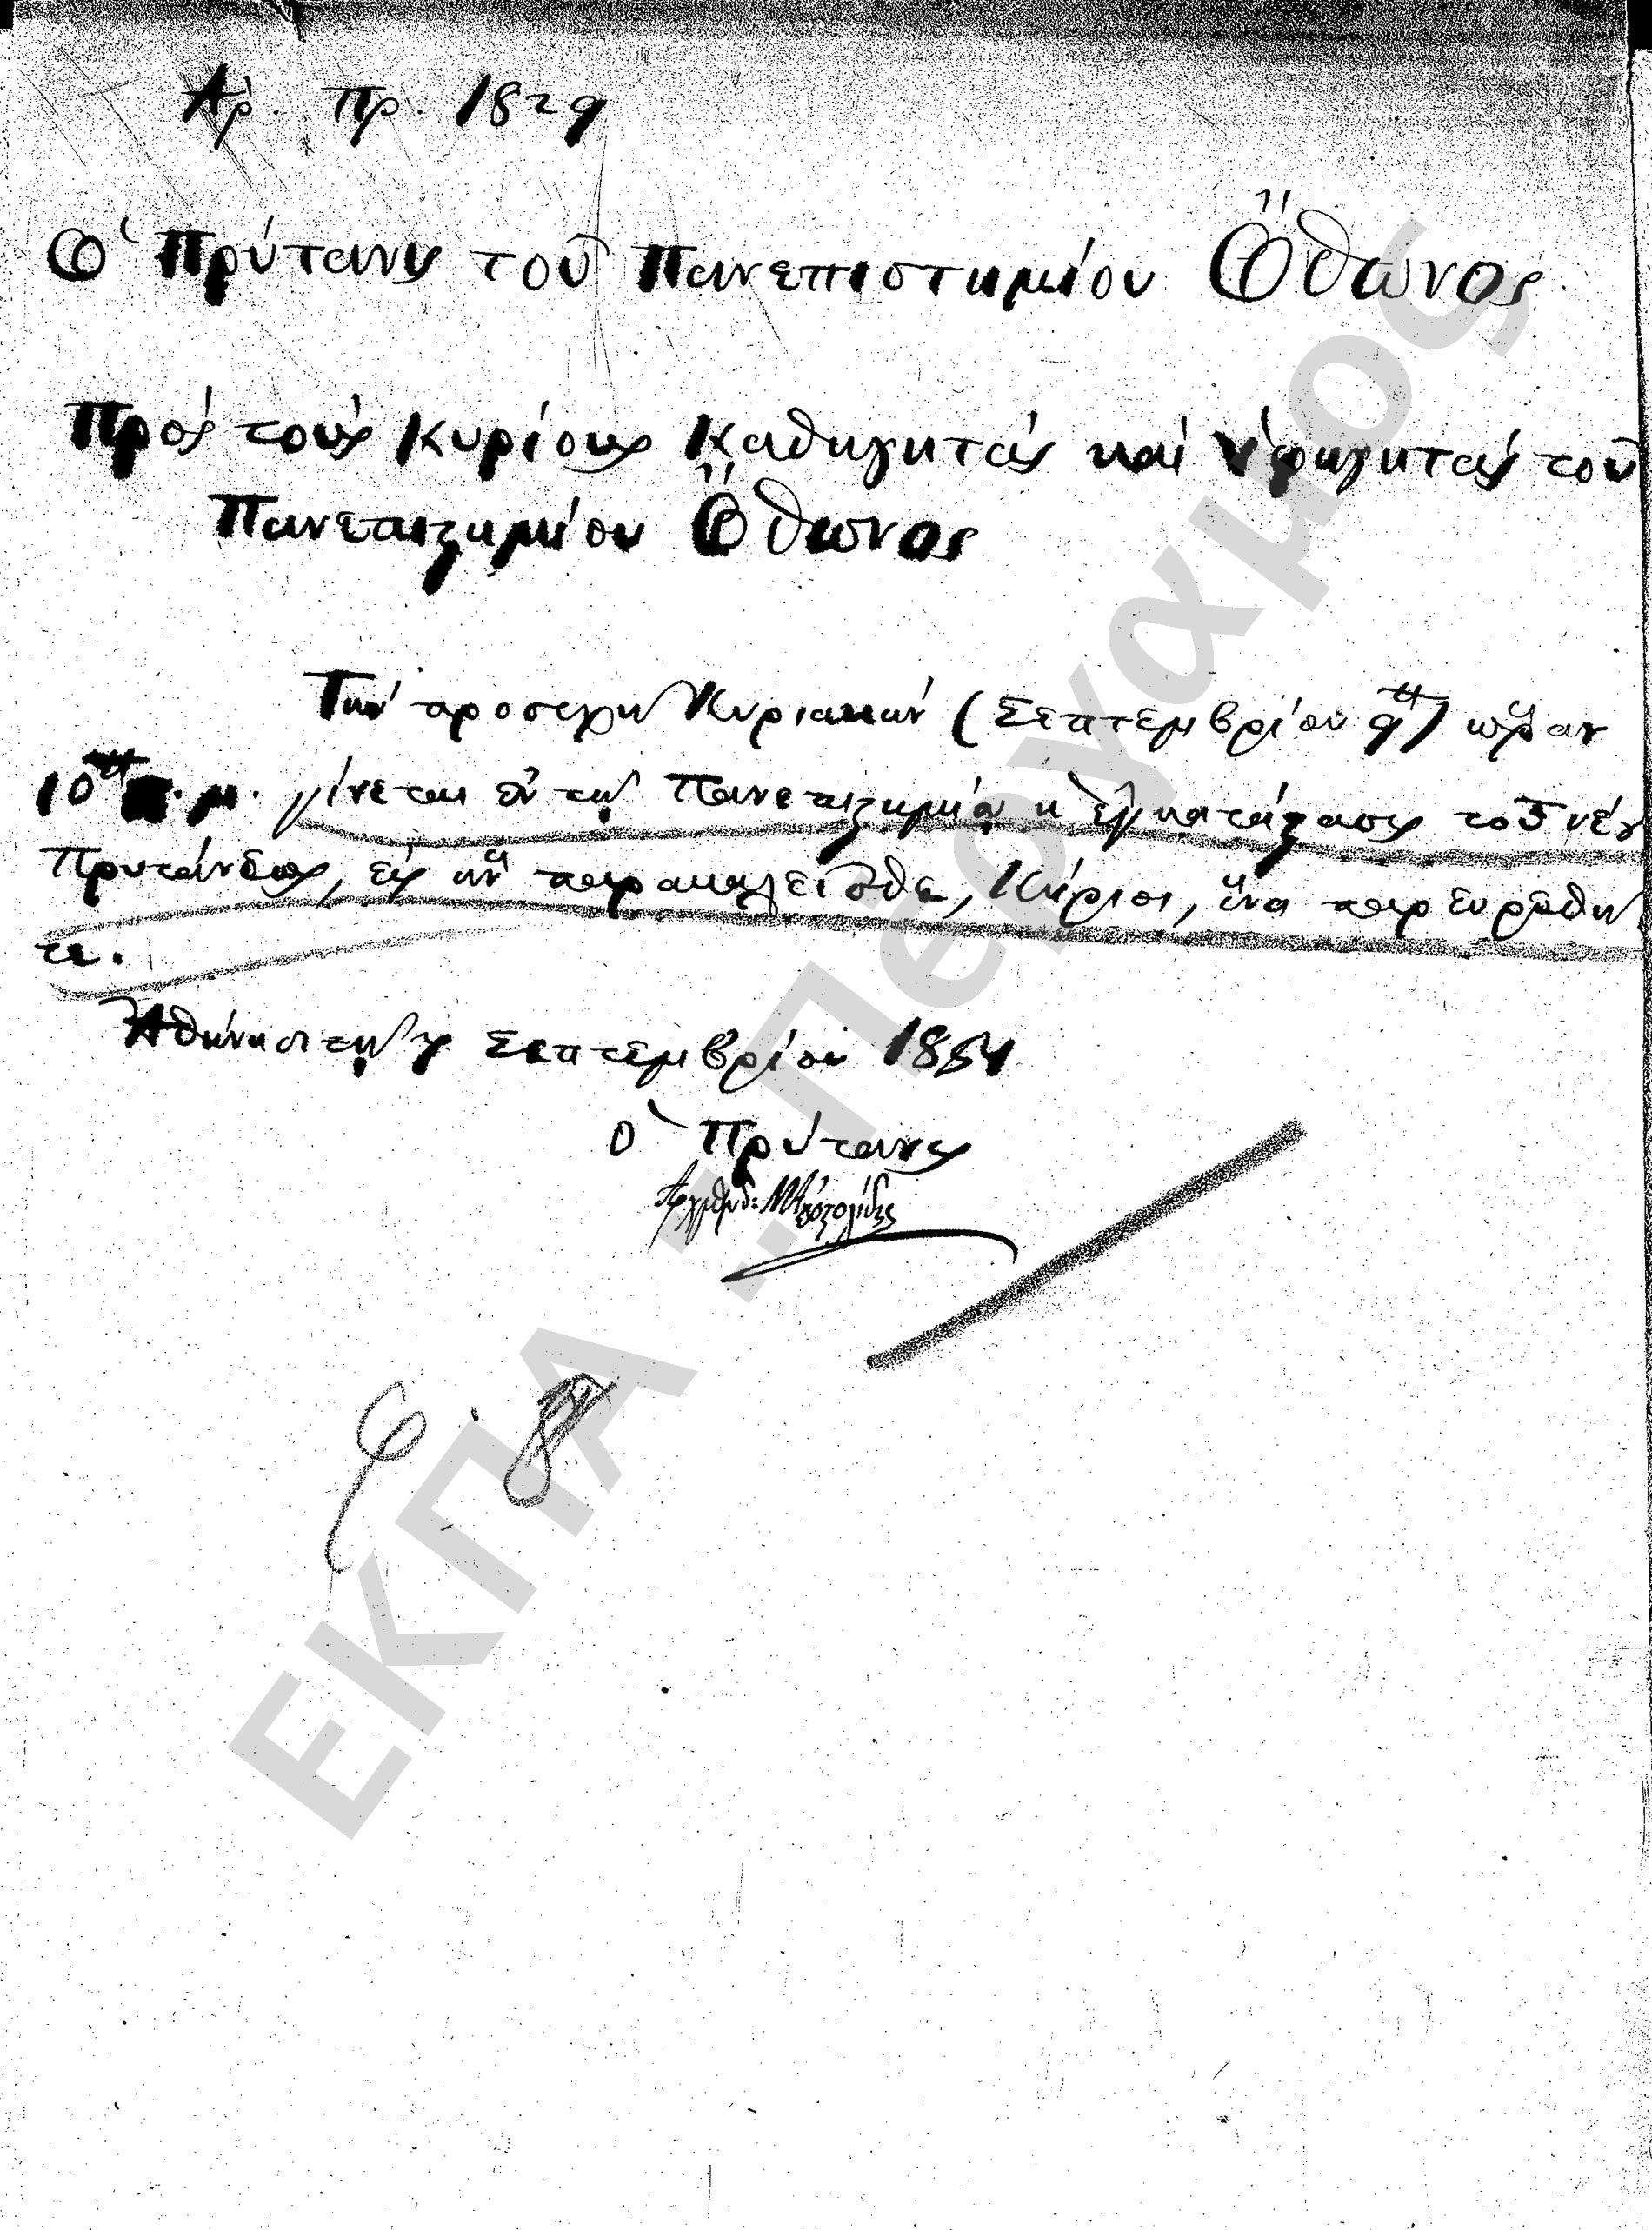 Ἀρ. πρ. 1829
Ὁ Πρύτανις τοῦ Πανεπιστημίου Ὄθωνος
Πρὸς τοὺς Κυρίους Καθηγητὰς καὶ Ὑφηγητὰς τοῦ
Πανεπιστημίου Ὄθωνος
Τὴν προσεχῆ Κυριακὴν (Σεπτεμβρίου 9ῃ) ὥραν
10ην π. μ. γίνεται ἐν τῷ Πανεπιστημίῳ ἡ ἐγκατάστασις τοῦ νέου
Πρυτάνεως, εἰς ἣν παρακαλεῖσθε, Κύριοι, ἵνα παρευρεθῆ
τε.
Ἀθήνησι τῇ γ Σεπτεμβρίου 1854
Ὁ Πρύτανις
Ἀρχιμανδ: Μ Ἀποστολίδης
ΕΚΠΑ - Πέργαμος